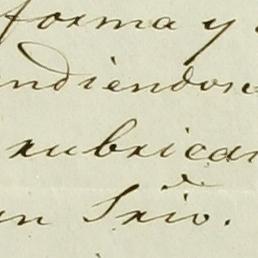 forma y
ndiendose
rubrican
un Srio.